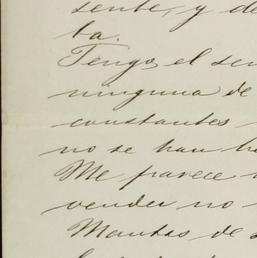 sente, y de
ta.
Tengo el sen
ninguna de
constantes
no se han h
Me parece
vender no
Mantas de